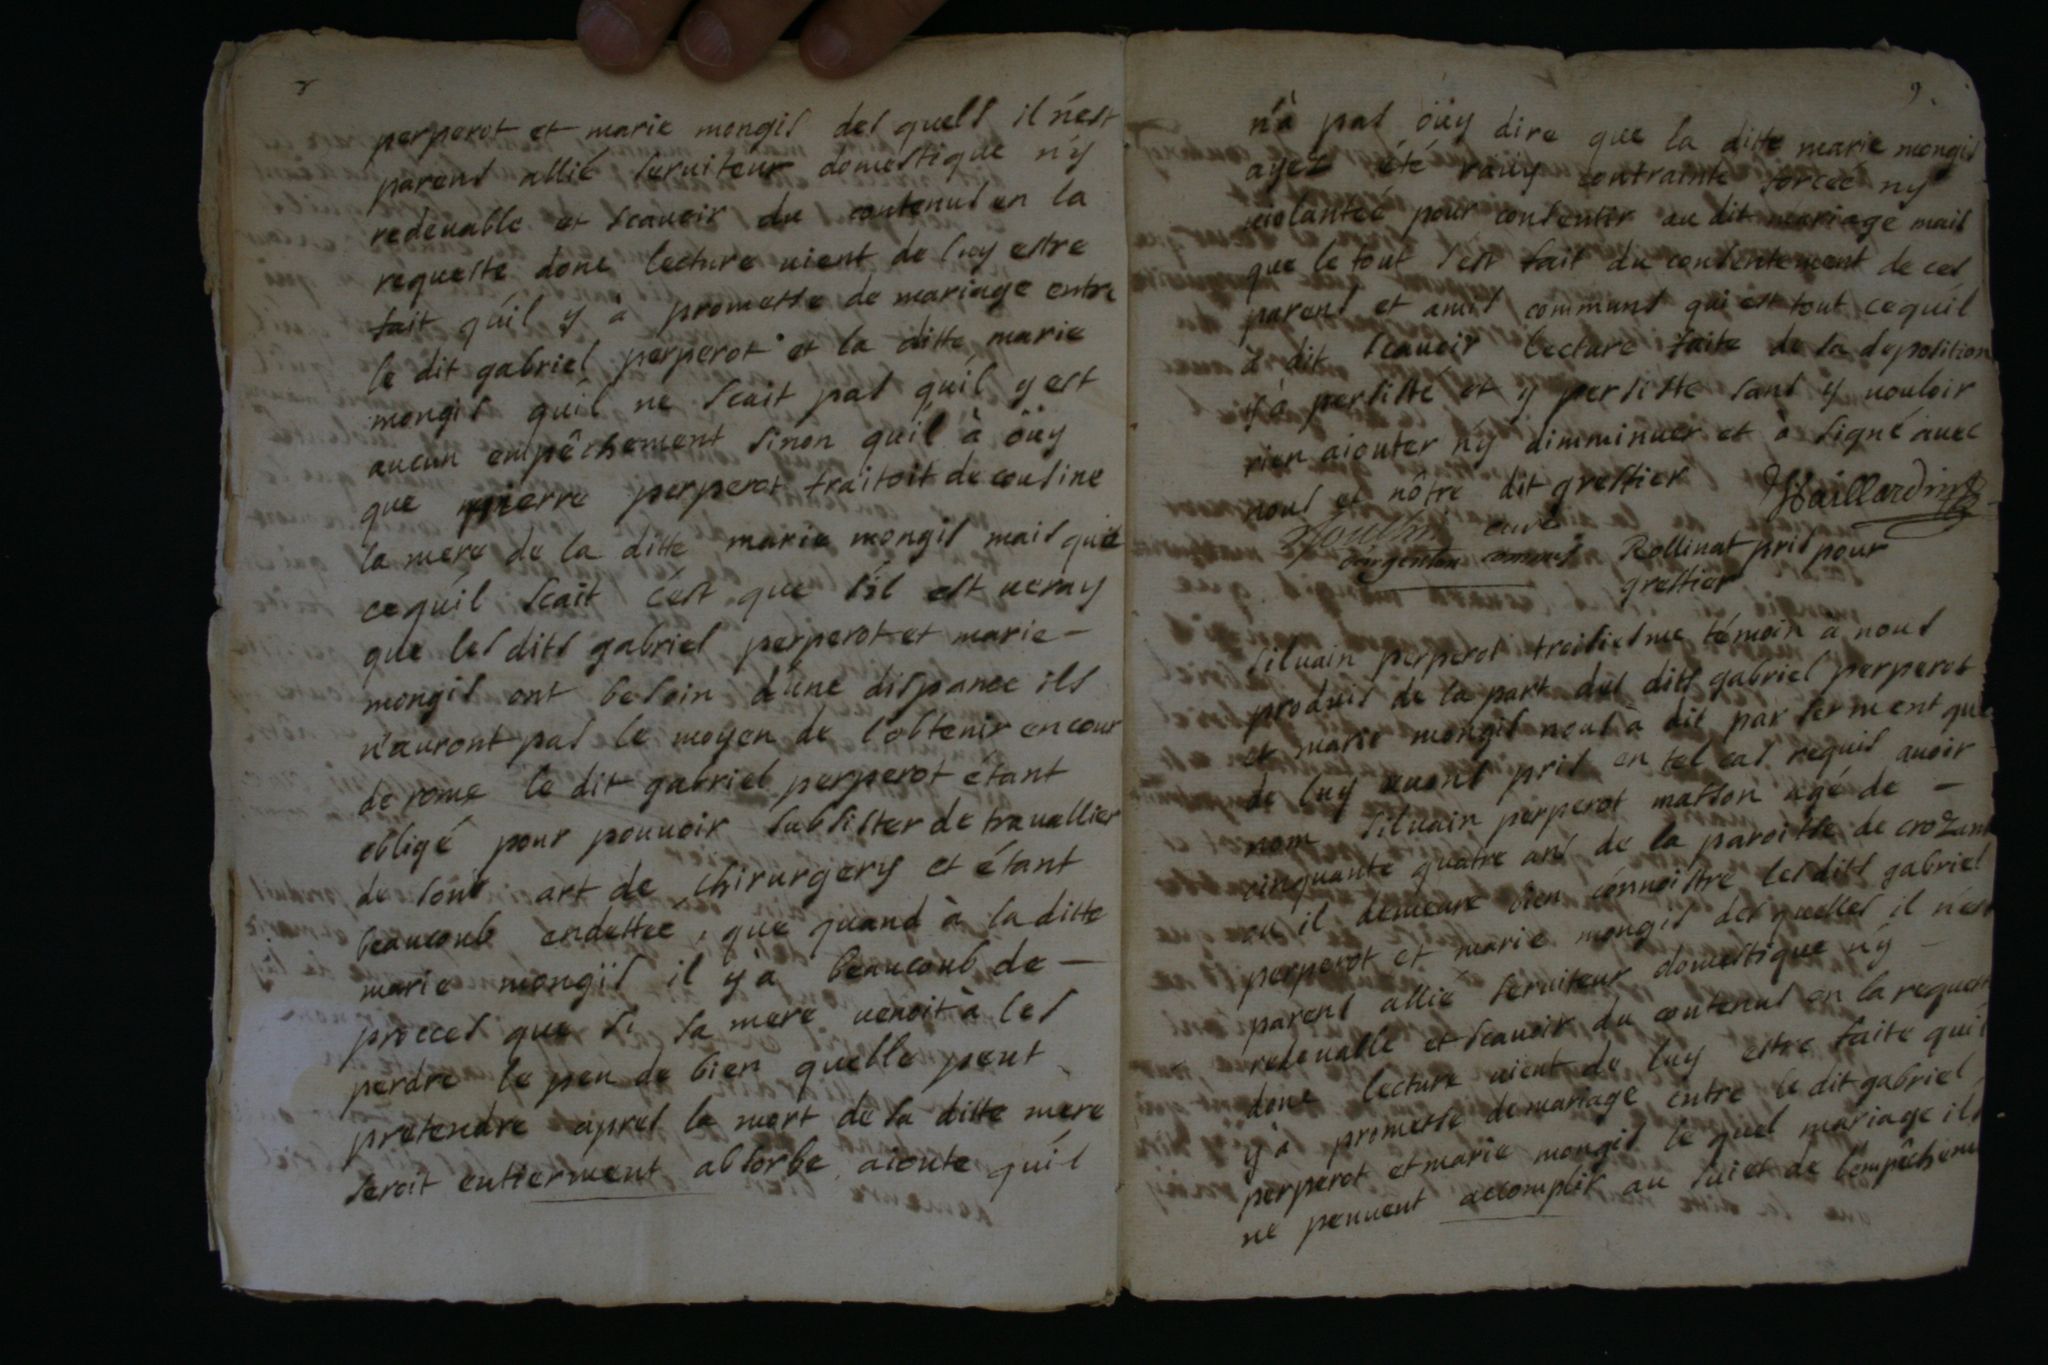 perperot et marie mongis des quels il n'est
parens allié seruiteur domestique n'y
redeuable et scauoir du contenus en la
requeste donc lecture uient de luy estre
fait qu'il y à promesse de mariage entre
le dit gabriel perperot et la ditte marie
mongis qu'il ne scait pas qu'il y est
aucun empêchement sinon qu'il à öüy
que pierre perperot traitoit de cousine
la mere de la ditte marie mongis mais que
cequ'il scait c'est que s'il est ueray
que les dits gabriel perperot et marie -
mongis ont besoin d'une dispance ils
n'auront pas le moyen de l'obtenir en cour
de rome le dit gabriel perperot étant
obligé pour pouuoir subsister de trauallier
de sont art de chirurgery et étant
beaucoub endettee, que quand à la ditte
marie mongïs il y'a beaucoub de -
procces que si sa mere uenoit à les
perdre le peu de bien quelle peut
pretendre apres la mort de sa ditte mere
seroit entierment absorbe aioute qu'il
9.
n'à pas öüy dire que la ditte marie mongis
ayez été rauy contrainte forcée ny
uiolantéé pour consentir au dit mariage mais
que le tout s'est fait du consentement de ces
parens et amis communs qui est tout cequ'il
à dit scauoir lecture faite de sa deposition
y à persisté et y persiste sans y uouloir
rien aiouter n'y dimminuer et à signé auec
nous et nôtre dit greffier
curé
d'argenton commis Rollinat pris pour
greffier
siluain perperot troisiesme témoin à nous
produis de la part des dits gabriel perperot
et marie mongis nous à dit par serment que
de luy auons pris en tel cas requis auoir
nom siluain perperot masson agé de -
cinquante quatre ans de la paroisse de crozant
ou il demeure bien connoistre les dits gabriel
perperot et marie mongis des quelles il n'est
parens allié seruiteur domestique n'y -
redeuable et scauoir du contenus en la requeste
donc lecture uient de luy estre faite qu'il
y'à promesse de mariage entre le dit gabriel
perperot et marie mongis le quel mariage ils
ne peuuent accomplir au suiet de l'empêchem